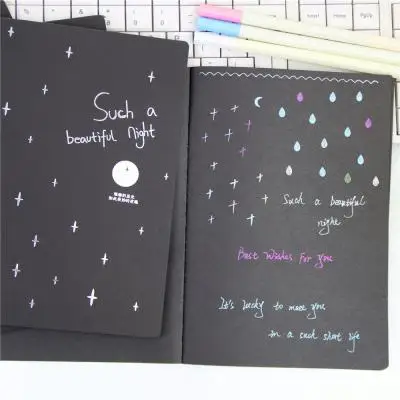 Such a
beautiful night
Such a beautiful
night
Best Wishes For you
It's lucky to meet you
in a such short life